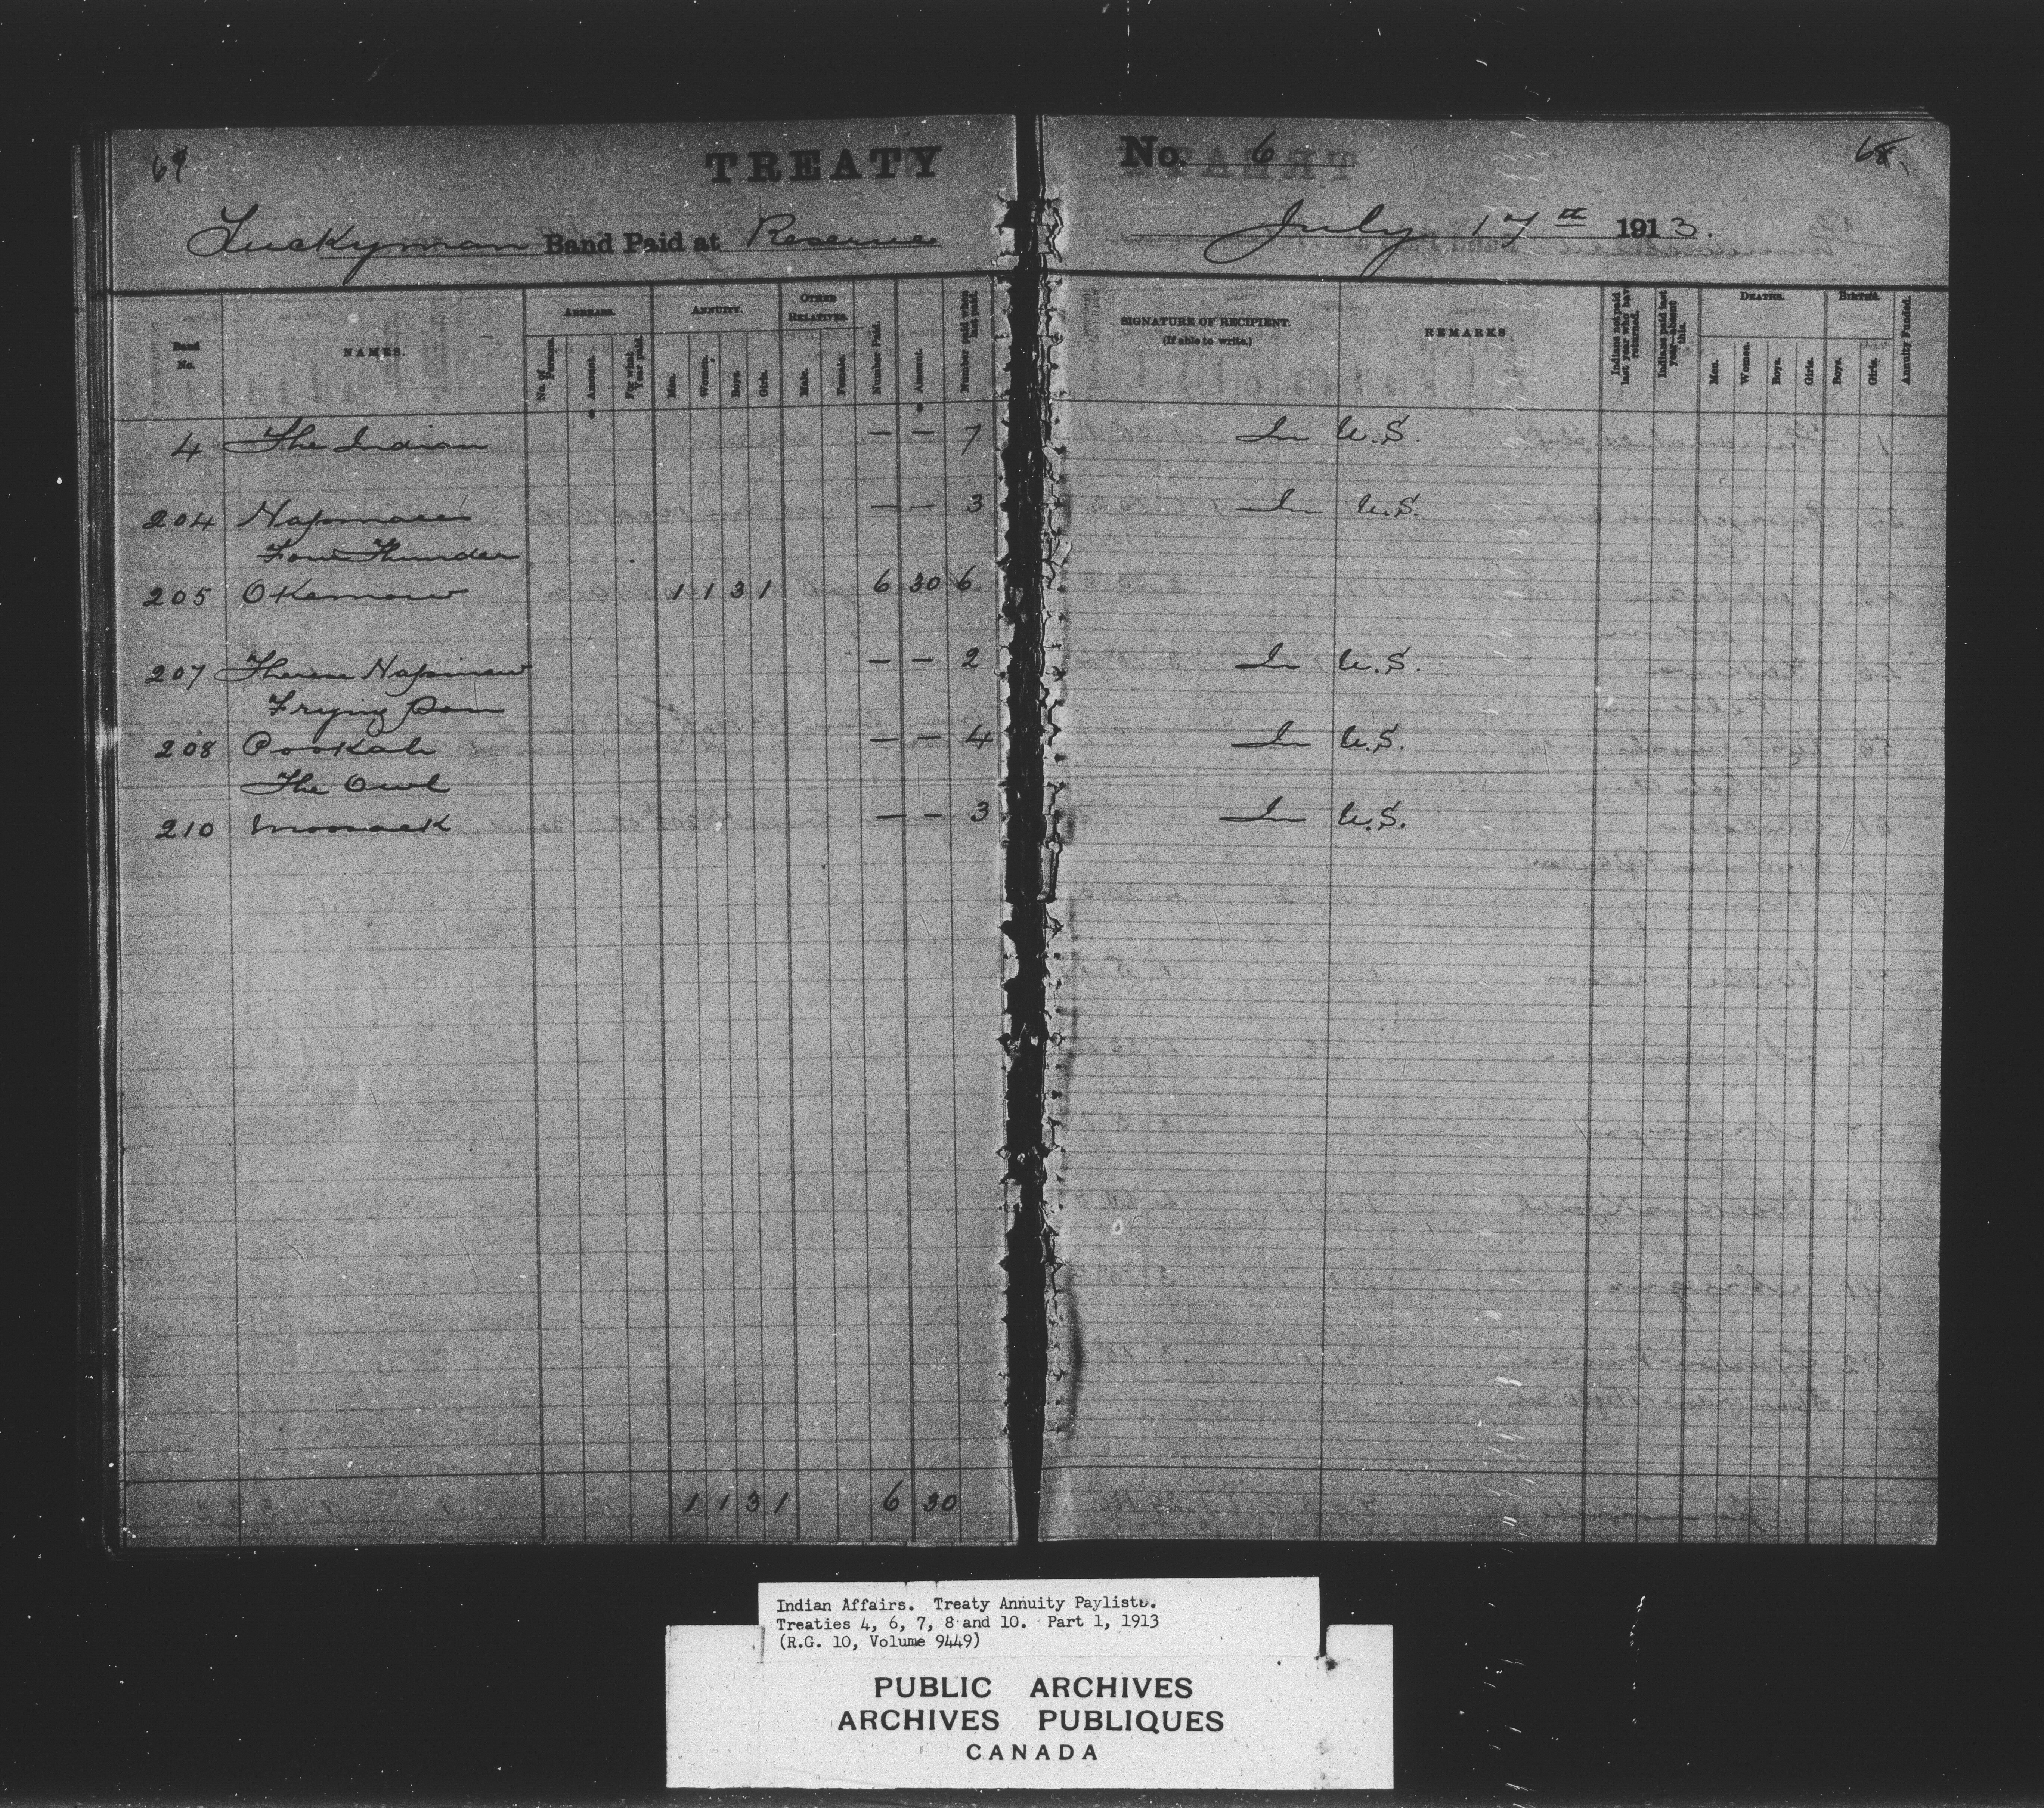 TREATY No. 6
Luckyman Band Paid at Reserve July 17th 1913.
Band No.
NAMES.
ARREARS.
No. of Persons.
Amount.
For what Year paid.
ANNUITY.
Men.
Women.
Boys.
Girls.
OTHER RELATIVES.
Male.
Female.
Number Paid.
Amount.
Number paid when last paid.
SIGNATURE OF RECIPIENT.
(If able to write.)
REMARKS
Indians not paid last year who have returned.
Indians paid last year—absent this.
DEATHS.
Men.
Women.
Boys.
Girls.
BIRTHS.
Boys.
Girls.
Annuity Funded.
4 The Indian — — 7 In U.S.
204 — — 3 In U.S.
Four Thunder
205 OKemow 1 1 3 1 6 30 6
207 Therese Napinew — — 2 In U.S.
Frying Pan
208 PooKah — — 4 In U.S.
The Owl
210 — — 3 In U.S.
1 1 3 1 6 30
Indian Affairs. Treaty Annuity Paylists.
Treaties 4, 6, 7, 8 and 10. Part 1, 1913
(R.G. 10, Volume 9449)
PUBLIC ARCHIVES
ARCHIVES PUBLIQUES
CANADA